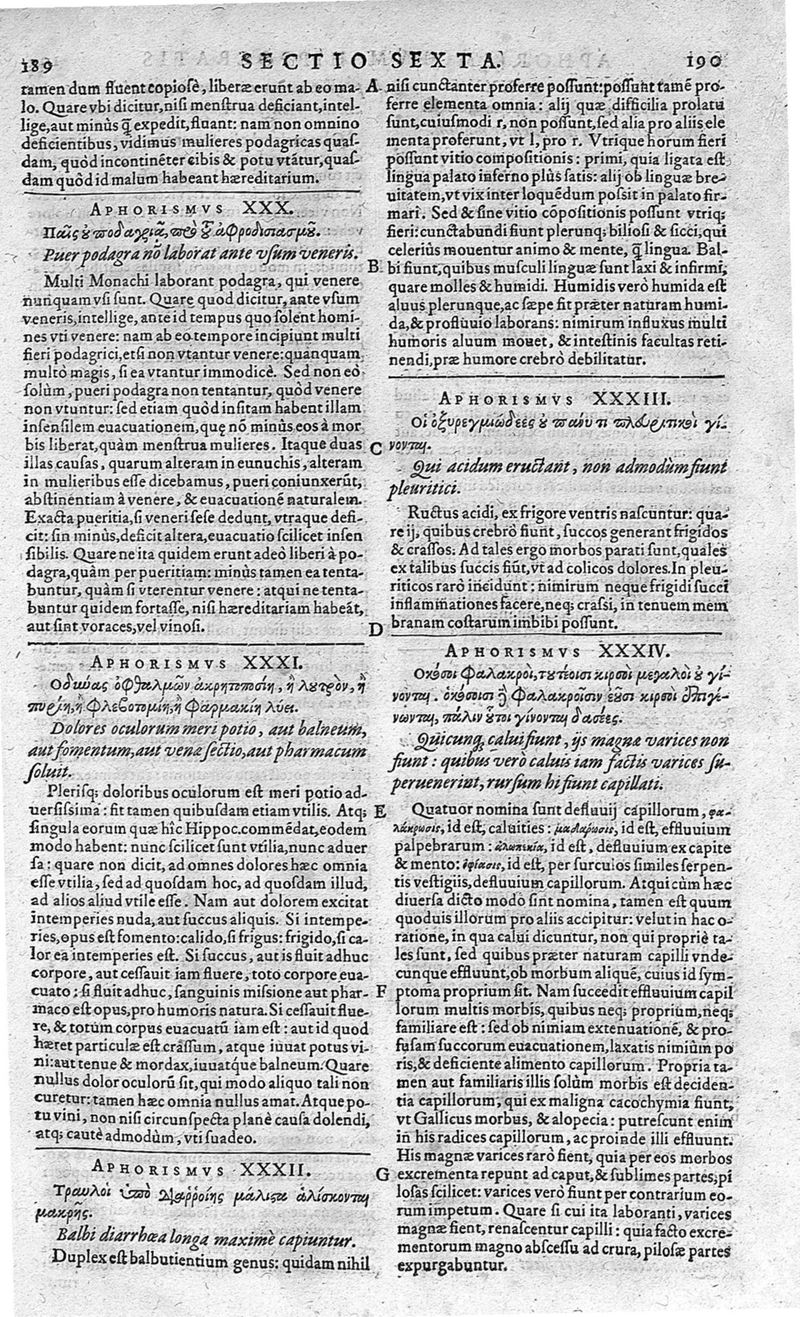 189 SECTIO SEXTA. 190
tamen dum fluent copiosè, liberæ erunt ab eo ma-
lo. Quare vbi dicitur, nisi menstrua deficiant, intel-
lige, aut minùs q̃ expedit, fluant: nam non omnino
deficientibus, vidimus mulieres podagricas quas-
dam, quòd incontinẽter cibis & potu vtãtur, quas-
dam quòd id malum habeant hæreditarium.
APHORISMVS XXX.
Παῖς οὐ ποδαγριᾷ, πρὸ τοῦ ἀφροδισιασμοῦ.
Puer podagra nõ laborat ante vsum veneris.
Multi Monachi laborant podagra, qui venere
nunquam vsi sunt. Quare quod dicitur, ante vsum
veneris, intellige, ante id tempus quo solent homi-
nes vti venere: nam ab eo tempore incipiunt multi
fieri podagrici, etsi non vtantur venere: quanquam
multò magis, si ea vtantur immodicè. Sed non eo
solùm, pueri podagra non tentantur, quòd venere
non vtuntur: sed etiam quòd insitam habent illam
insensilem euacuationem, quę nõ minùs eos à mor
bis liberat, quàm menstrua mulieres. Itaque duas
illas causas, quarum alteram in eunuchis, alteram
in mulieribus esse dicebamus, pueri coniunxerũt,
abstinentiam à venere, & euacuationẽ naturalem.
Exacta pueritia, si veneri sese dedunt, vtraque defi-
cit: sin minùs, deficit altera, euacuatio scilicet insen
sibilis. Quare ne ita quidem erunt adeò liberi à po-
dagra, quàm per pueritiam: minùs tamen ea tenta-
buntur, quàm si vterentur venere: atqui ne tenta-
buntur quidem fortasse, nisi hæreditariam habeãt,
aut sint voraces, vel vinosi.
APHORISMVS XXXI.
Οδύνας ὀφθαλμῶν ἀκρητοποσίη, ἢ λουτρὸν, ἢ
πυρίη, ἢ φλεβοτομίη, ἢ φαρμακίη λύει.
Dolores oculorum meri potio, aut balneum,
aut fomentum, aut venæ sectio, aut pharmacum
soluit.
Plerisq; doloribus oculorum est meri potio ad-
uersissima: fit tamen quibusdam etiam vtilis. Atq;
singula eorum quæ hîc Hippoc. commẽdat, eodem
modo habent: nunc scilicet sunt vtilia, nunc aduer
sa: quare non dicit, ad omnes dolores hæc omnia
esse vtilia, sed ad quosdam hoc, ad quosdam illud,
ad alios aliud vtile esse. Nam aut dolorem excitat
intemperies nuda, aut succus aliquis. Si intempe-
ries, opus est fomento: calido, si frigus: frigido, si ca-
lor ea intemperies est. Si succus, aut is fluit adhuc
corpore, aut cessauit iam fluere, toto corpore eua-
cuato: si fluit adhuc, sanguinis missione aut phar-
maco est opus, pro humoris natura. Si cessauit flue-
re, & totum corpus euacuatũ iam est: aut id quod
hæret particulæ est crassum, atque iuuat potus vi-
ni: aut tenue & mordax, iuuatq́ue balneum. Quare
nullus dolor oculorũ sit, qui modo aliquo tali non
curetur: tamen hæc omnia nullus amat. Atque po-
tu vini, non nisi circunspecta planè causa dolendi,
atq; cautè admodùm, vti suadeo.
APHORISMVS XXXII.
Τραυλοὶ ὑπὸ διαῤῥοίης μάλιστα ἁλίσκονται
μακρῆς.
Balbi diarrhœa longa maximè capiuntur.
Duplex est balbutientium genus: quidam nihil
A nisi cunctanter proferre possunt: possunt tamẽ pro-
ferre elementa omnia: alij quæ difficilia prolatu
sunt, cuiusmodi r, non possunt, sed alia pro aliis ele
menta proferunt, vt l, pro r. Vtrique horum fieri
possunt vitio compositionis: primi, quia ligata est
lingua palato inferno plùs satis: alij ob linguæ bre-
uitatem, vt vix inter loquẽdum possit in palato fir-
mari. Sed & sine vitio cõpositionis possunt vtriq;
fieri: cunctabundi fiunt plerunq; biliosi & sicci, qui
celeriùs mouentur animo & mente, q̃ lingua. Bal-
B bi fiunt, quibus musculi linguæ sunt laxi & infirmi,
quare molles & humidi. Humidis verò humida est
aluus plerunque, ac sæpe fit præter naturam humi-
da, & profluuio laborans: nimirum influxus multi
humoris aluum mouet, & intestinis facultas reti-
nendi, præ humore crebrò debilitatur.
APHORISMVS XXXIII.
Οἱ ὀξυρεγμιώδεες οὐ πάνυ τι πλευριτικοὶ γί-
C νονται.
Qui acidum eructant, non admodùm fiunt
pleuritici.
Ructus acidi, ex frigore ventris nascuntur: qua-
re ij, quibus crebrò fiunt, succos generant frigidos
& crassos. Ad tales ergo morbos parati sunt, quales
ex talibus succis fiũt, vt ad colicos dolores. In pleu-
riticos rarò incidunt: nimirum neque frigidi succi
inflammationes facere, neq; crassi, in tenuem mem
D branam costarum imbibi possunt.
APHORISMVS XXXIV.
Οκόσοι φαλακροὶ, τουτέοισι κιρσοὶ μεγάλοι οὐ γί-
νονται. ὁκόσοισι δὲ φαλακροῖσιν ἐοῦσι κιρσοὶ ἐπιγέ-
νωνται, πάλιν οὗτοι γίνονται δασέες.
Quicunq; calui fiunt, ijs magnæ varices non
fiunt: quibus verò caluis iam factis varices su-
peruenerint, rursum hi fiunt capillati.
E Quatuor nomina sunt defluuij capillorum, φα-
λάκρωσις, id est, caluities: μαδάρωσις, id est, effluuium
palpebrarum: ἀλωπεκία, id est, defluuium ex capite
& mento: ὀφίασις, id est, per surculos similes serpen-
tis vestigiis, defluuium capillorum. Atqui cùm hæc
diuersa dicto modò sint nomina, tamen est quum
quoduis illorum pro aliis accipitur: velut in hac o-
ratione, in qua calui dicuntur, non qui propriè ta-
les sunt, sed quibus præter naturam capilli vnde-
F cunque effluunt, ob morbum aliquẽ, cuius id sym-
ptoma proprium sit. Nam succedit effluuium capil
lorum multis morbis, quibus neq; proprium, neq;
familiare est: sed ob nimiam extenuationẽ, & pro-
fusam succorum euacuationem, laxatis nimiùm po
ris, & deficiente alimento capillorum. Propria ta-
men aut familiaris illis solùm morbis est deciden-
tia capillorum, qui ex maligna cacochymia fiunt,
vt Gallicus morbus, & alopecia: putrescunt enim
in his radices capillorum, ac proinde illi effluunt.
His magnæ varices rarò fient, quia per eos morbos
G excrementa repunt ad caput, & sublimes partes, pi
losas scilicet: varices verò fiunt per contrarium eo-
rum impetum. Quare si cui ita laboranti, varices
magnæ fient, renascentur capilli: quia facto excre-
mentorum magno abscessu ad crura, pilosæ partes
expurgabuntur.